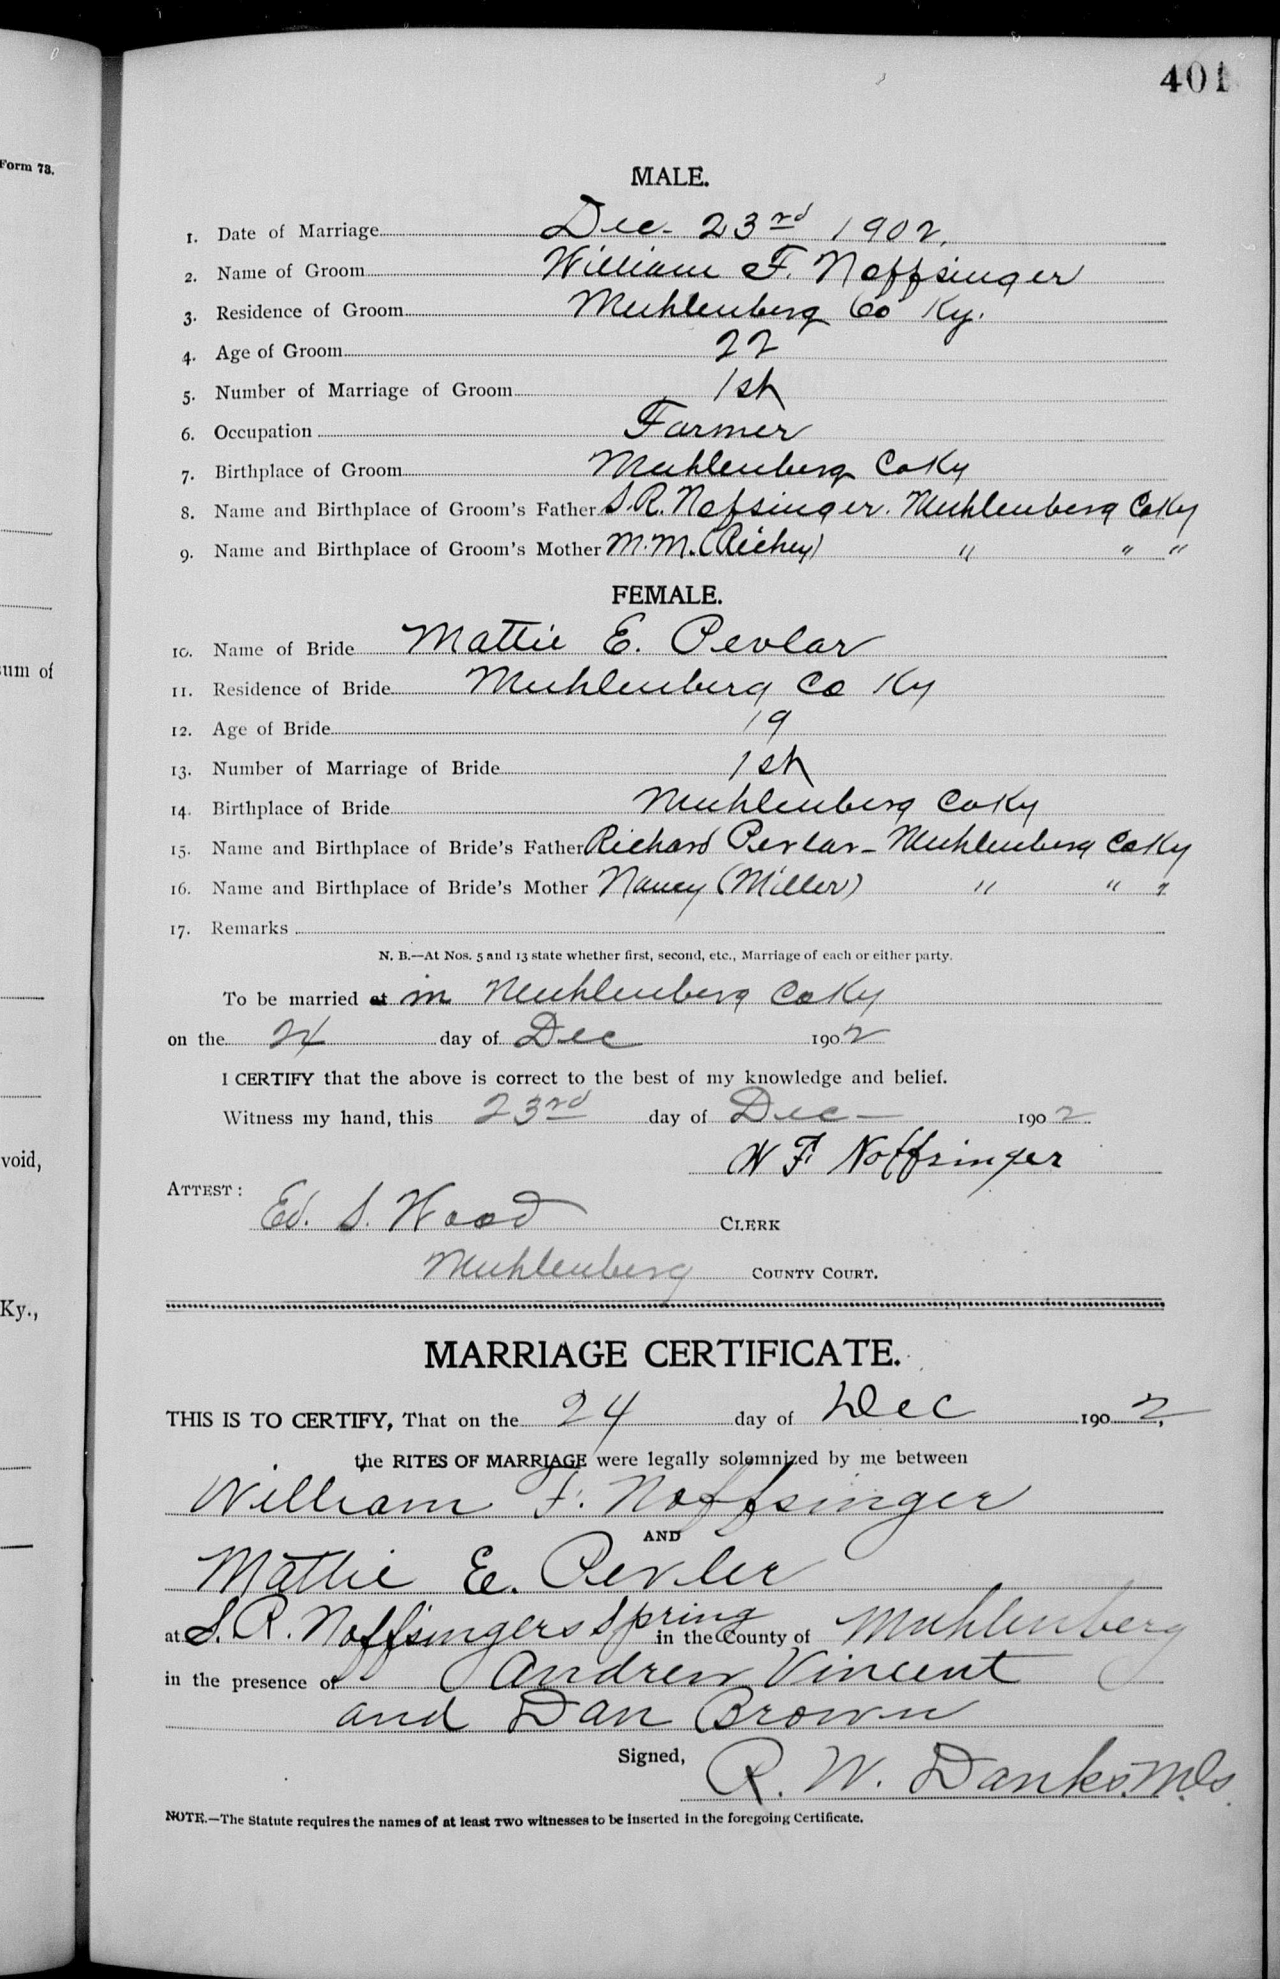 401
Form 73.
MALE.
1. Date of Marriage Dec- 23rd 1902.
2. Name of Groom William F. Noffsinger
3. Residence of Groom Muhlenberg Co Ky.
4. Age of Groom 22
5. Number of Marriage of Groom 1st
6. Occupation Farmer
7. Birthplace of Groom Muhlenberg Co Ky
8. Name and Birthplace of Groom's Father S. R. Nofsinger. Muhlenberg Co Ky
9. Name and Birthplace of Groom's Mother M. M. (Richey) " " "
FEMALE.
10. Name of Bride Mattie E. Pevlar
sum of
11. Residence of Bride Muhlenberg Co Ky
12. Age of Bride 19
13. Number of Marriage of Bride 1st
14. Birthplace of Bride Muhlenberg Co Ky
15. Name and Birthplace of Bride's Father Richard Pevlar - Muhlenberg Co Ky
16. Name and Birthplace of Bride's Mother Nancy (Miller) " " "
17. Remarks
N. B.—At Nos. 5 and 13 state whether first, second, etc., Marriage of each or either party.
To be married at in Muhlenberg Co Ky
on the 24 day of Dec 1902
I CERTIFY that the above is correct to the best of my knowledge and belief.
Witness my hand, this 23rd day of Dec- 1902
void,
W F Noffsinger
ATTEST:
Ed. S. Wood CLERK
Muhlenberg COUNTY COURT.
Ky.,
MARRIAGE CERTIFICATE.
THIS IS TO CERTIFY, That on the 24 day of Dec 1902,
the RITES OF MARRIAGE were legally solemnized by me between
William F. Noffsinger
AND
Mattie E. Pevler
at S. R. Noffsingers Spring in the County of Muhlenberg
in the presence of Andrew Vincent
and Dan Brown
Signed, R. W. Danks.
NOTE.—The Statute requires the names of at least TWO witnesses to be inserted in the foregoing Certificate.